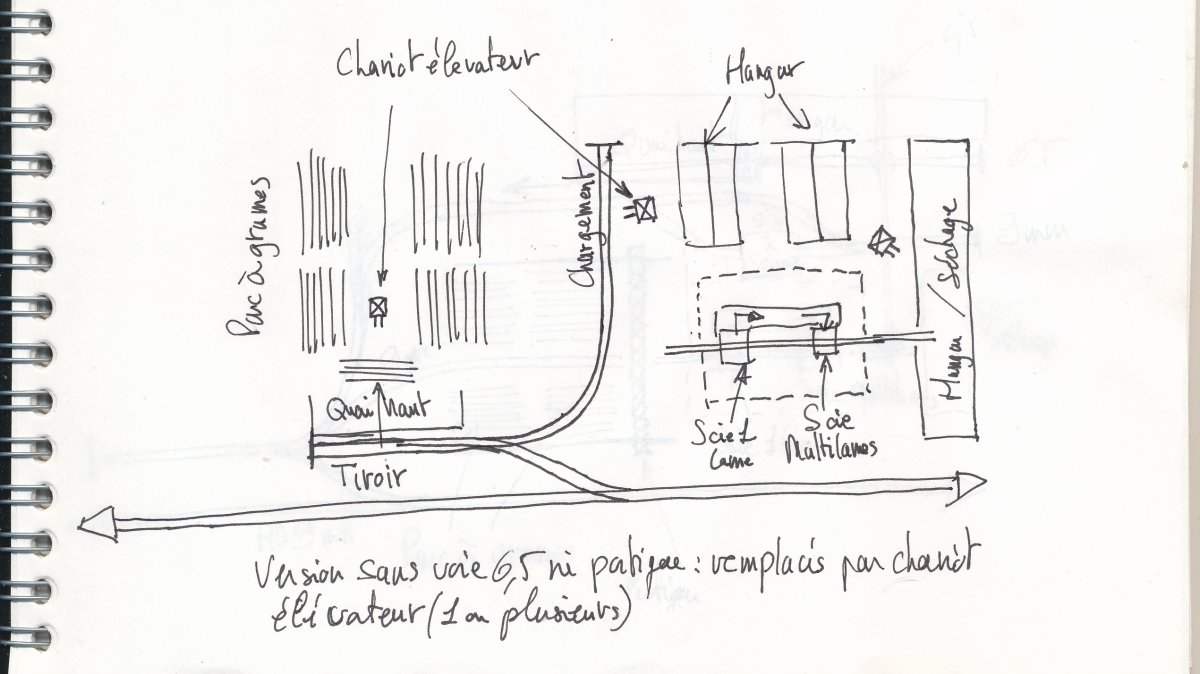 Chariot élevateur
Hangar
Parc à grumes
Chargement
Hangar / Séchage
Quai Haut
Scie 1
Lame
Scie
Multilames
Tiroir
Version sans voie 6,5 ni patique : remplacés par chariot
élévateur (1 ou plusieurs)